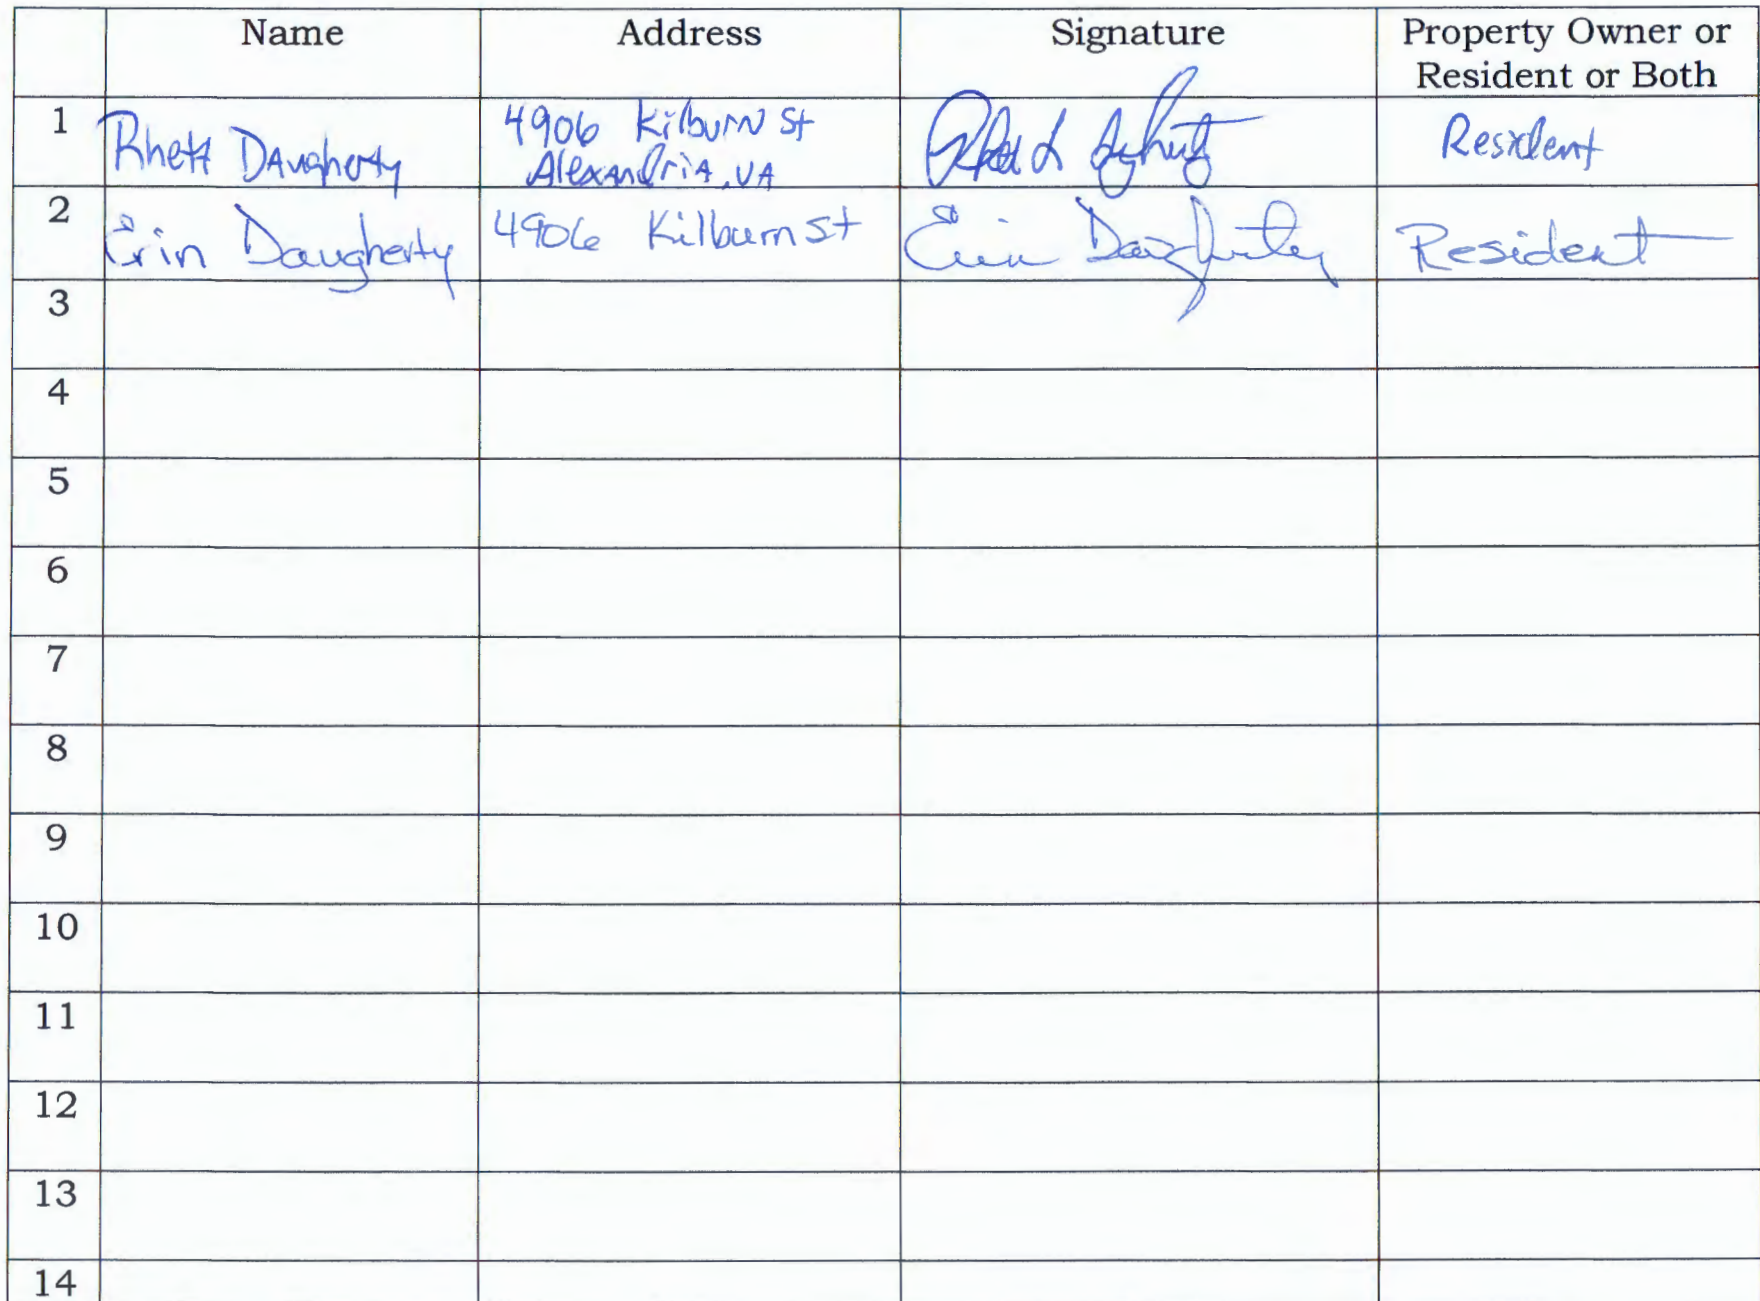 Name Address Signature Property Owner or
Resident or Both
1 Rhett DAugherty 4906 Kilburn St
Alexandria, VA
Resident
2 Erin Daugherty 4906 Kilburn St Erin Daugherty Resident
3
4
5
6
7
8
9
10
11
12
13
14